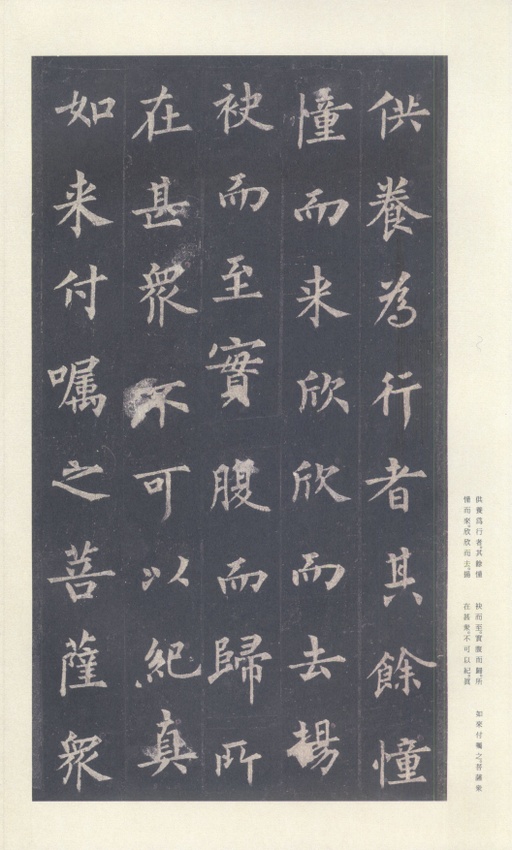 供養為行者其餘憧
憧而来欣欣而去揚
袂而至實腹而歸所
在甚衆不可以紀真
如来付嘱之菩薩衆
供養爲行者其餘憧
憧而來欣欣而去揚
袂而至實腹而歸所
在甚衆不可以紀眞
如來付囑之菩薩衆